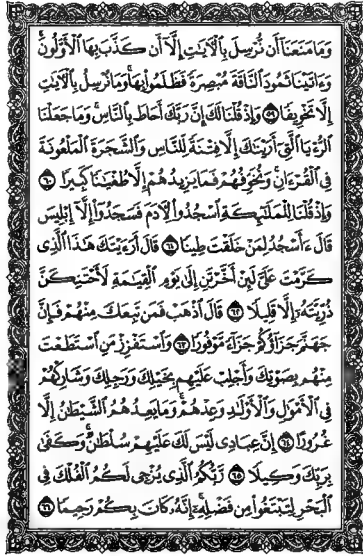 وَمَا مَنَعَنَا أَن نُّرْسِلَ بِالْآيَٰتِ إِلَّا أَن كَذَّبَ بِهَا الْأَوَّلُونَ ۚ
وَءَاتَيْنَا ثَمُودَ النَّاقَةَ مُبْصِرَةً فَظَلَمُوا۟ بِهَا ۚ وَمَا نُرْسِلُ بِالْآيَٰتِ
إِلَّا تَخْوِيفًا ٥٩ وَإِذْ قُلْنَا لَكَ إِنَّ رَبَّكَ أَحَاطَ بِالنَّاسِ ۚ وَمَا جَعَلْنَا
الرُّءْيَا الَّتِي أَرَيْنَٰكَ إِلَّا فِتْنَةً لِّلنَّاسِ وَالشَّجَرَةَ الْمَلْعُونَةَ
فِي الْقُرْءَانِ ۚ وَنُخَوِّفُهُمْ فَمَا يَزِيدُهُمْ إِلَّا طُغْيَٰنًا كَبِيرًا ٦٠
وَإِذْ قُلْنَا لِلْمَلَٰٓئِكَةِ اسْجُدُوا۟ لِءَادَمَ فَسَجَدُوٓا۟ إِلَّآ إِبْلِيسَ
قَالَ ءَأَسْجُدُ لِمَنْ خَلَقْتَ طِينًا ٦١ قَالَ أَرَءَيْتَكَ هَٰذَا الَّذِي
كَرَّمْتَ عَلَيَّ لَئِنْ أَخَّرْتَنِ إِلَىٰ يَوْمِ الْقِيَٰمَةِ لَأَحْتَنِكَنَّ
ذُرِّيَّتَهُۥٓ إِلَّا قَلِيلًا ٦٢ قَالَ اذْهَبْ فَمَن تَبِعَكَ مِنْهُمْ فَإِنَّ
جَهَنَّمَ جَزَآؤُكُمْ جَزَآءً مَّوْفُورًا ٦٣ وَاسْتَفْزِزْ مَنِ اسْتَطَعْتَ
مِنْهُم بِصَوْتِكَ وَأَجْلِبْ عَلَيْهِم بِخَيْلِكَ وَرَجِلِكَ وَشَارِكْهُمْ
فِي الْأَمْوَٰلِ وَالْأَوْلَٰدِ وَعِدْهُمْ ۚ وَمَا يَعِدُهُمُ الشَّيْطَٰنُ إِلَّا
غُرُورًا ٦٤ إِنَّ عِبَادِي لَيْسَ لَكَ عَلَيْهِمْ سُلْطَٰنٌ ۚ وَكَفَىٰ
بِرَبِّكَ وَكِيلًا ٦٥ رَّبُّكُمُ الَّذِي يُزْجِي لَكُمُ الْفُلْكَ فِي
الْبَحْرِ لِتَبْتَغُوا۟ مِن فَضْلِهِۦٓ ۚ إِنَّهُۥ كَانَ بِكُمْ رَحِيمًا ٦٦